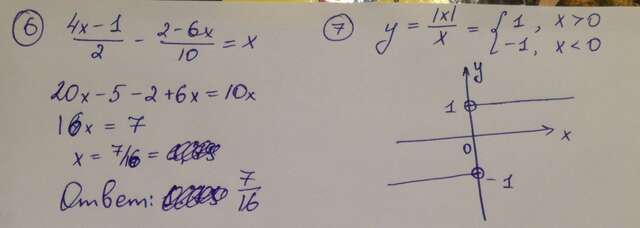 6 (4x-1)/2 - (2-6x)/10 = x
20x-5-2+6x=10x
16x = 7
x = 7/16 =
Ответ: 7/16
7 y = |x|/x = { 1, x>0
-1, x<0
y
1
x
0
-1